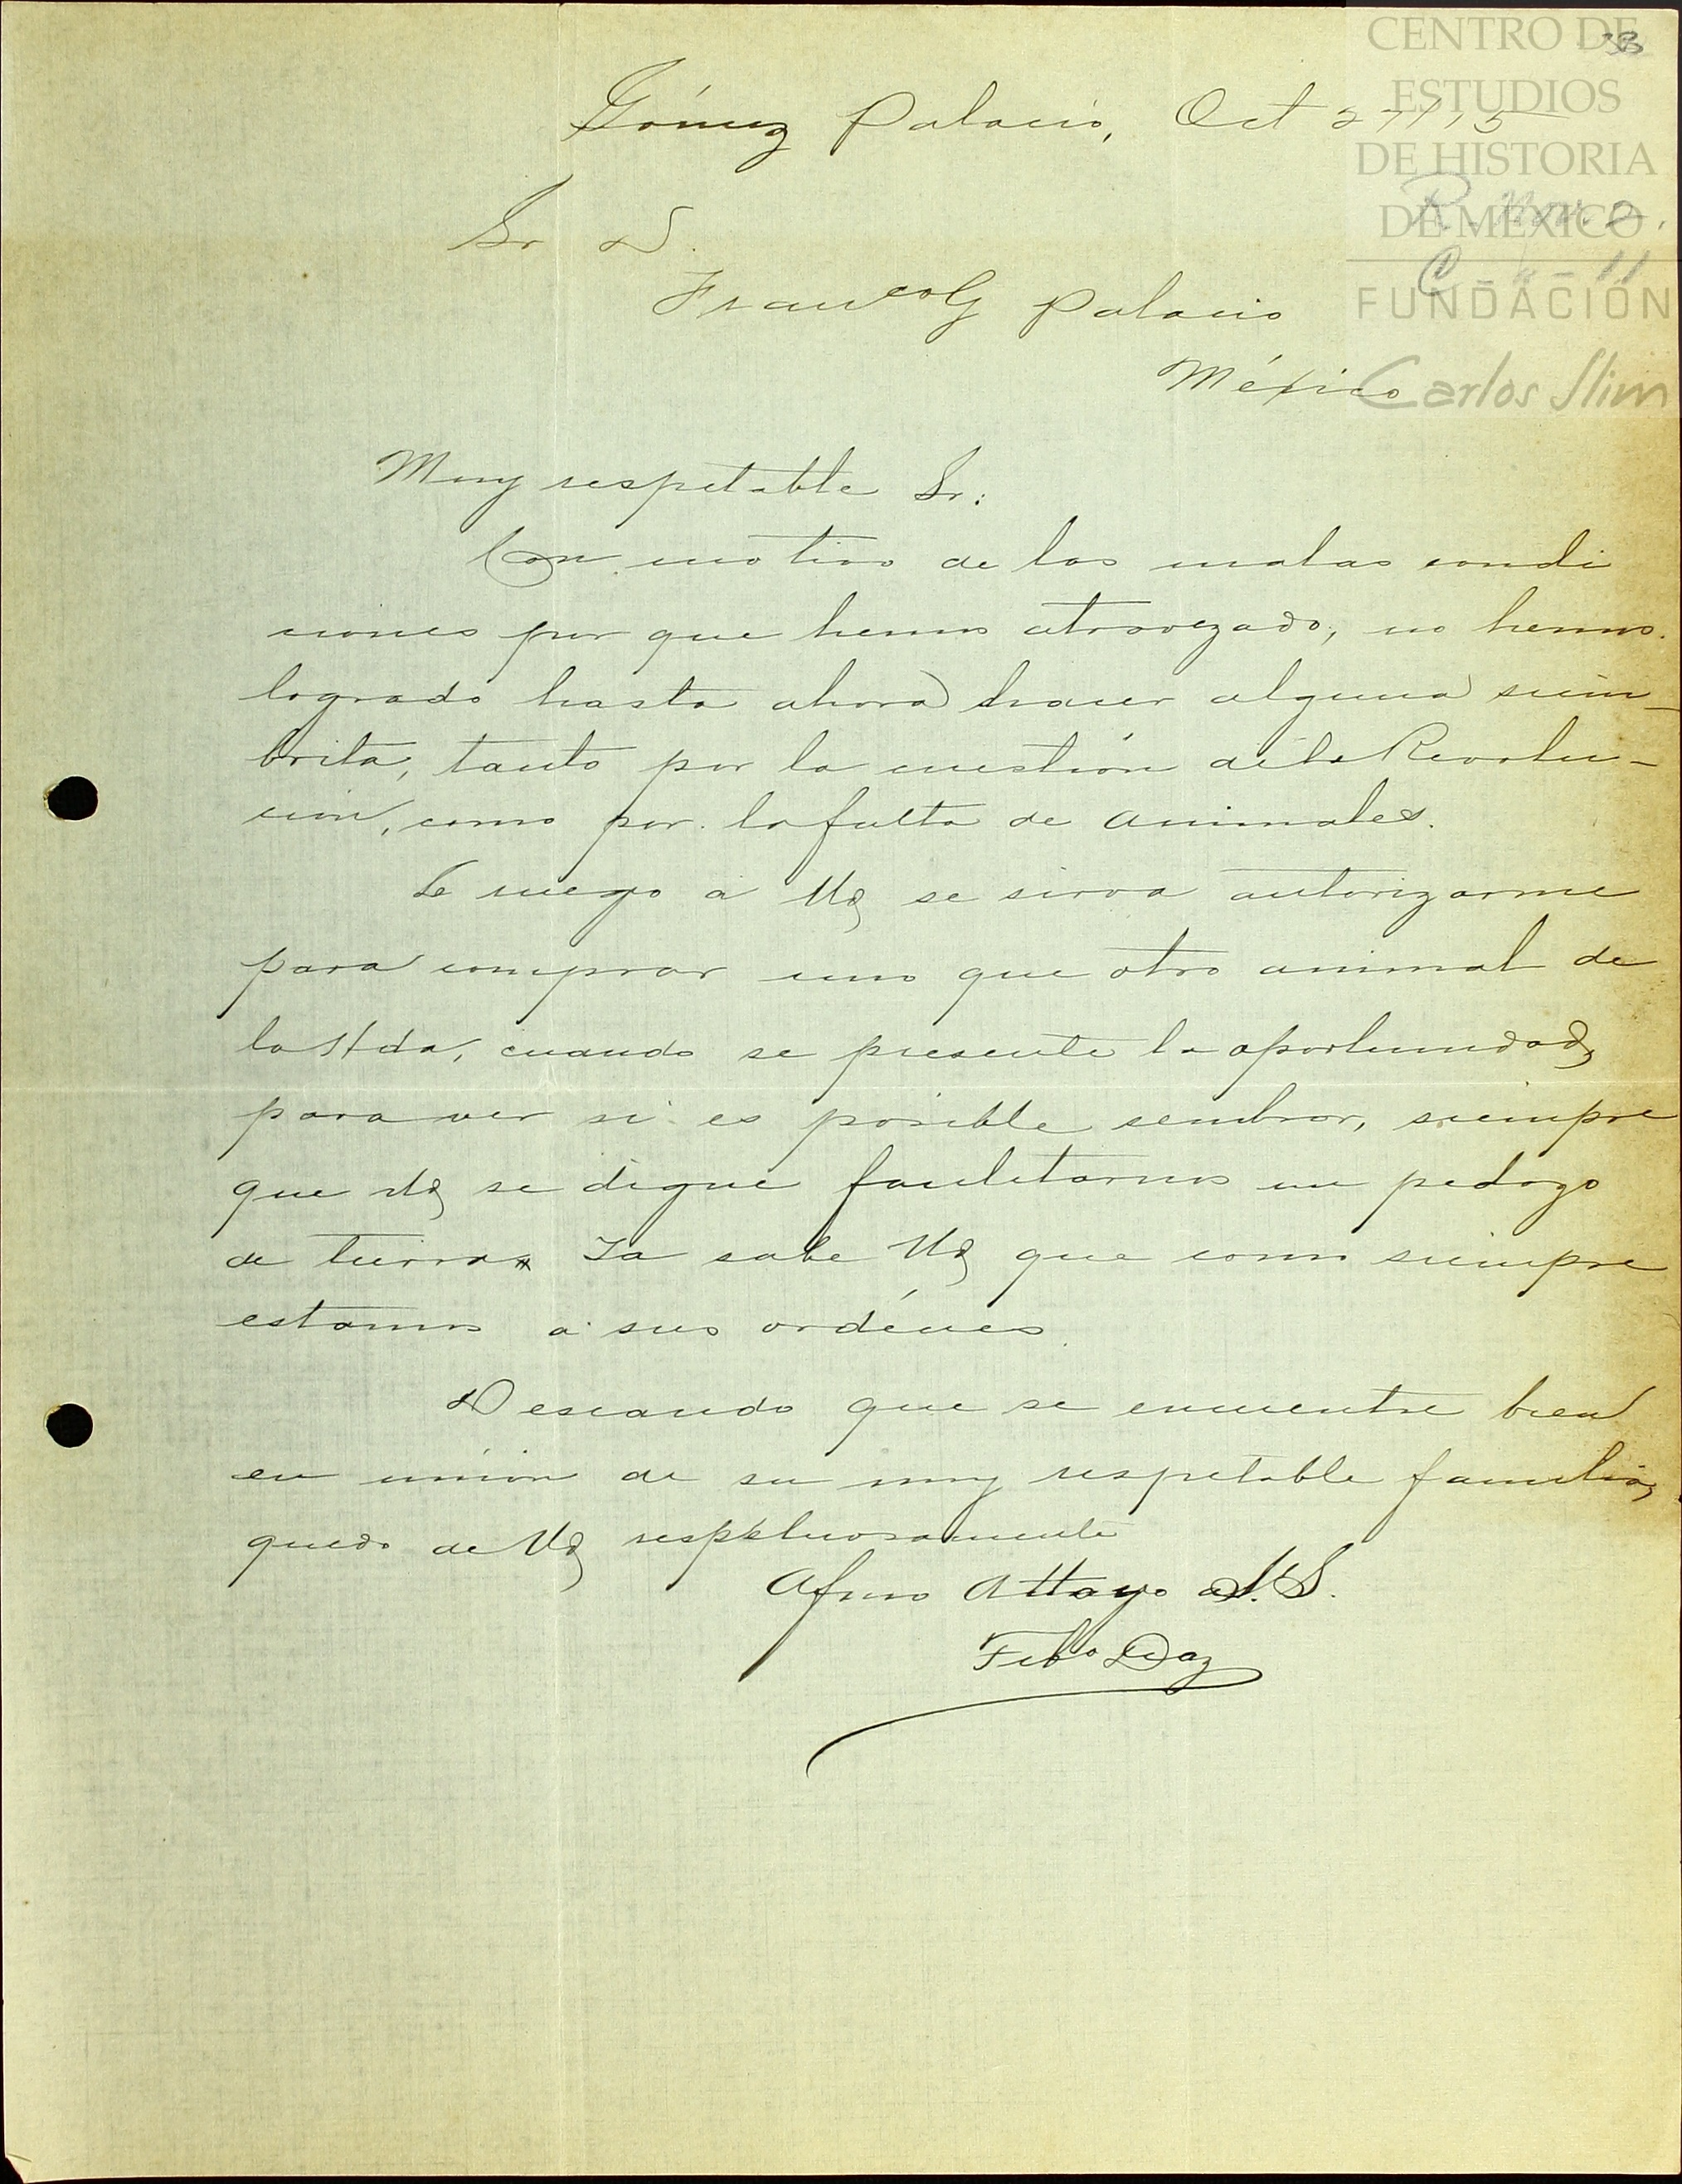 CENTRO DE
ESTUDIOS
DE HISTORIA
DE MÉXICO
FUNDACIÓN
Carlos Slim
Gómez Palacio, Oct 27/15
R. Nov. 2.
Sr D.
Franco G Palacio
México
Muy respetable Sr:
Con motivo de las malas condi
ciones por que hemos atravezado, no hemos
logrado hasta ahora hacer alguna siem-
brita, tanto por la cuestión de la Revolu-
ción, como por la falta de animales.
Le ruego á Ud se sirva autorizarme
para comprar uno que otro animal de
la Hda, cuando se presente la oportunidad,
para ver si es posible sembrar, siempre
que Ud se digne facilitarnos un pedazo
de tierra. Ya sabe Ud que como siempre
estamos á sus ordénes.
Deseando que se encuentre bien
en unión de su muy respetable familia,
quedo de Ud respetuosamente
Afmo Attayo S.S.
Febo Diaz